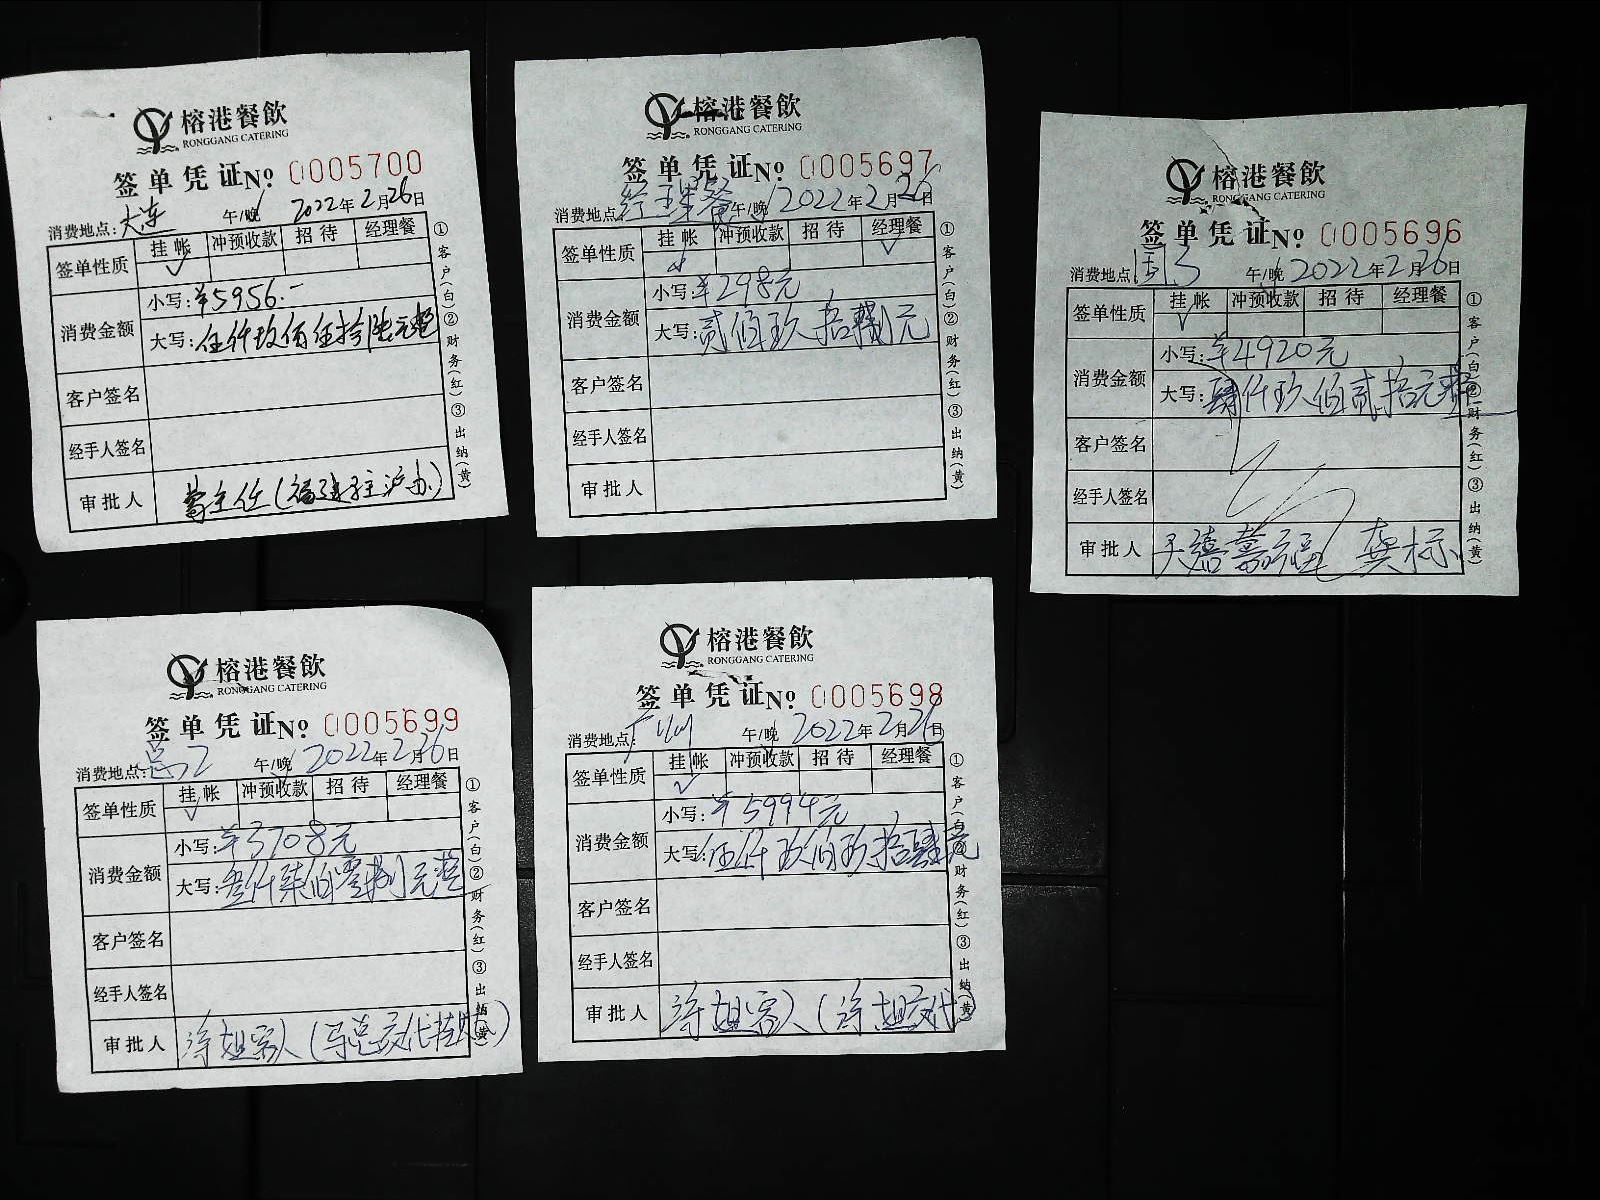 榕港餐飲
RONGGANG CATERING
签单凭证No 0005700
消费地点:大连 午/晚 2022年2月26日
签单性质 挂帐 冲预收款 招待 经理餐
✓
消费金额 小写:¥5956.-
大写:伍仟玖佰伍拾陆元整
客户签名
经手人签名
审批人 主任(福建驻沪办)
①客户(白)②财务(红)③出纳(黄)
榕港餐飲
RONGGANG CATERING
签单凭证No 0005697
消费地点:经理餐 午/晚 2022年2月26日
签单性质 挂帐 冲预收款 招待 经理餐
✓
消费金额 小写:¥298元
大写:贰佰玖拾捌元
客户签名
经手人签名
审批人
①客户(白)②财务(红)③出纳(黄)
榕港餐飲
RONGGANG CATERING
签单凭证No 0005696
消费地点: 午/晚 2022年2月26日
签单性质 挂帐 冲预收款 招待 经理餐
✓
消费金额 小写:¥4920元
大写:肆仟玖佰贰拾元整
客户签名
经手人签名
审批人
①客户(白)②财务(红)③出纳(黄)
榕港餐飲
RONGGANG CATERING
签单凭证No 0005699
消费地点: 午/晚 2022年2月26日
签单性质 挂帐 冲预收款 招待 经理餐
✓
消费金额 小写:¥3708元
大写:叁仟柒佰零捌元整
客户签名
经手人签名
审批人 姐客人(马总交代挂账)
①客户(白)②财务(红)③出纳(黄)
榕港餐飲
RONGGANG CATERING
签单凭证No 0005698
消费地点:广州 午/晚 2022年2月26日
签单性质 挂帐 冲预收款 招待 经理餐
✓
消费金额 小写:¥5994元
大写:伍仟玖佰玖拾肆元
客户签名
经手人签名
审批人 姐客人(姐交代)
①客户(白)②财务(红)③出纳(黄)